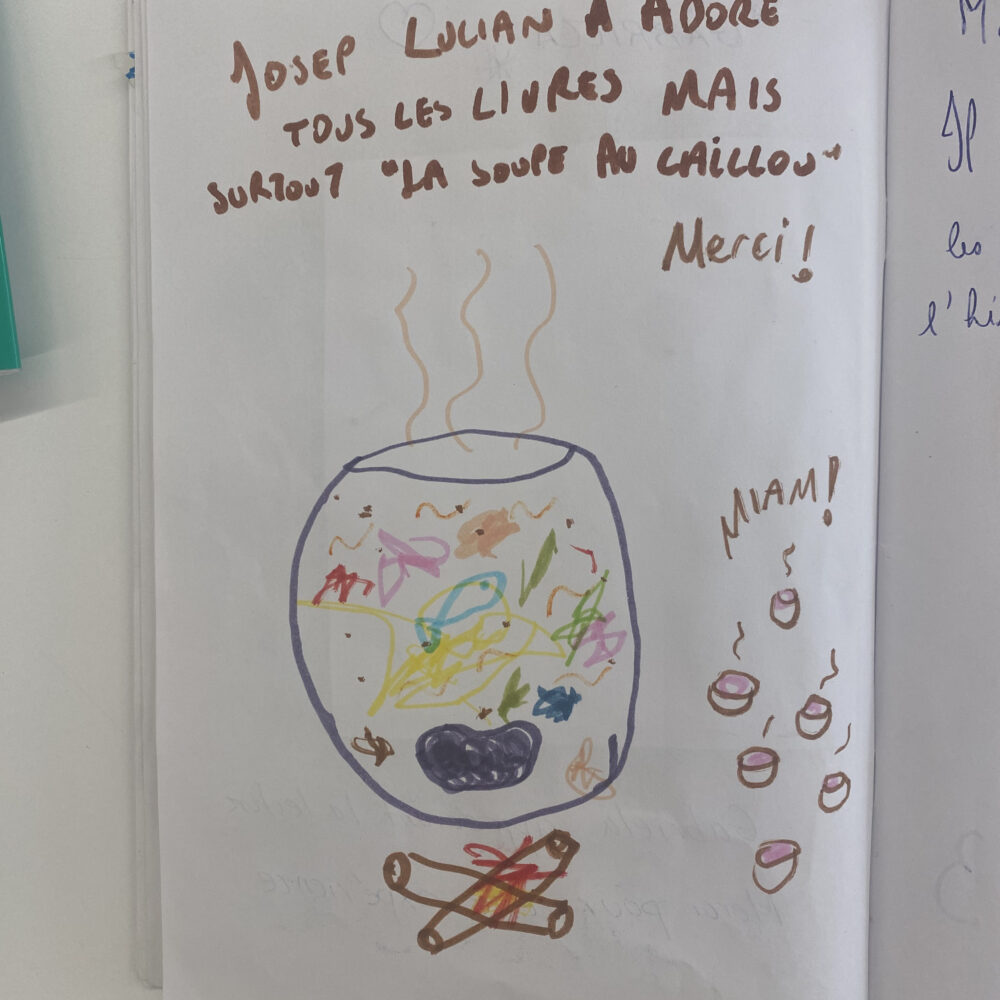 JOSEP LUCIAN A ADORÉ
TOUS LES LIVRES MAIS
SURTOUT "LA SOUPE AU CAILLOU"
Merci !
MIAM !
M.
Il
les
l'his